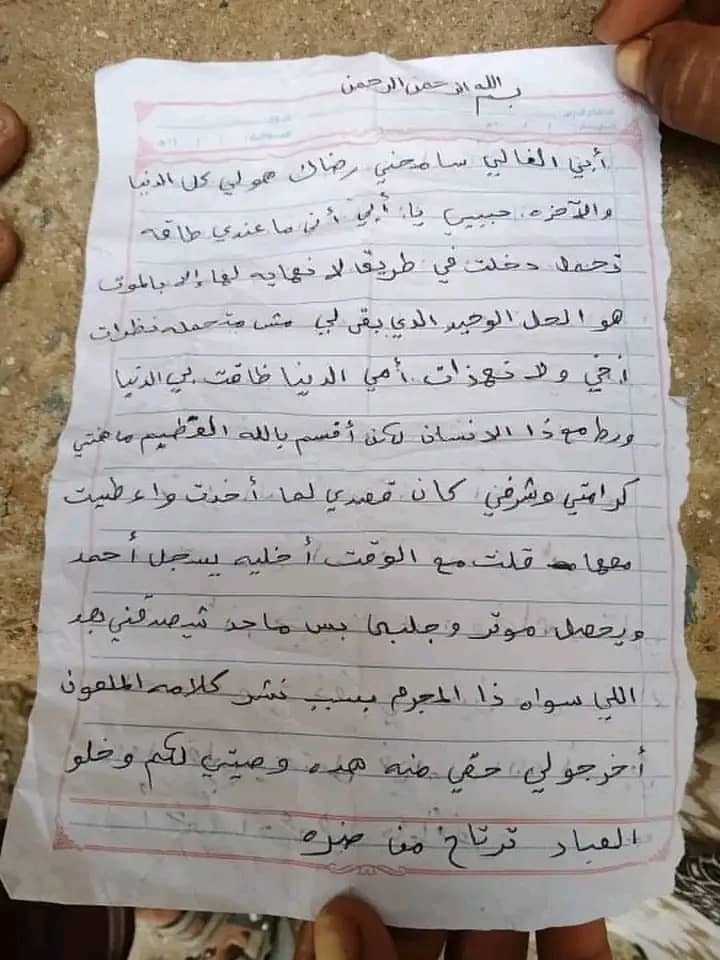 بسم الله الرحمن الرحمن
أبني الغالي سامحني رضاك هو لي كل الدنيا
والآخره حبيبي يا أبي أني ما عندي طاقه
تحمل دخلت في طريق لا نهايه لها إلا بالموت
هو الحل الوحيد الذي بقى لي مش متحمله نظرات
أخي ولا نهذات أمي الدنيا ظاقت بي الدنيا
مع ذا الانسان لكن أقسم بالله العظيم ما هنتي
كرامتي وشرفي كان قصدي لما أخذت واعطيت
معها قلت مع الوقت أخليه يسجل أحمد
ويحصل موتر وجلبى بس ماحد شيصدقني بعد
اللي سواه ذا المجرم بسبب نشر كلامه الملعون
أخرجولي حقي منه هده وصيتي لكم وخلو
العباد ترتاح من ضره